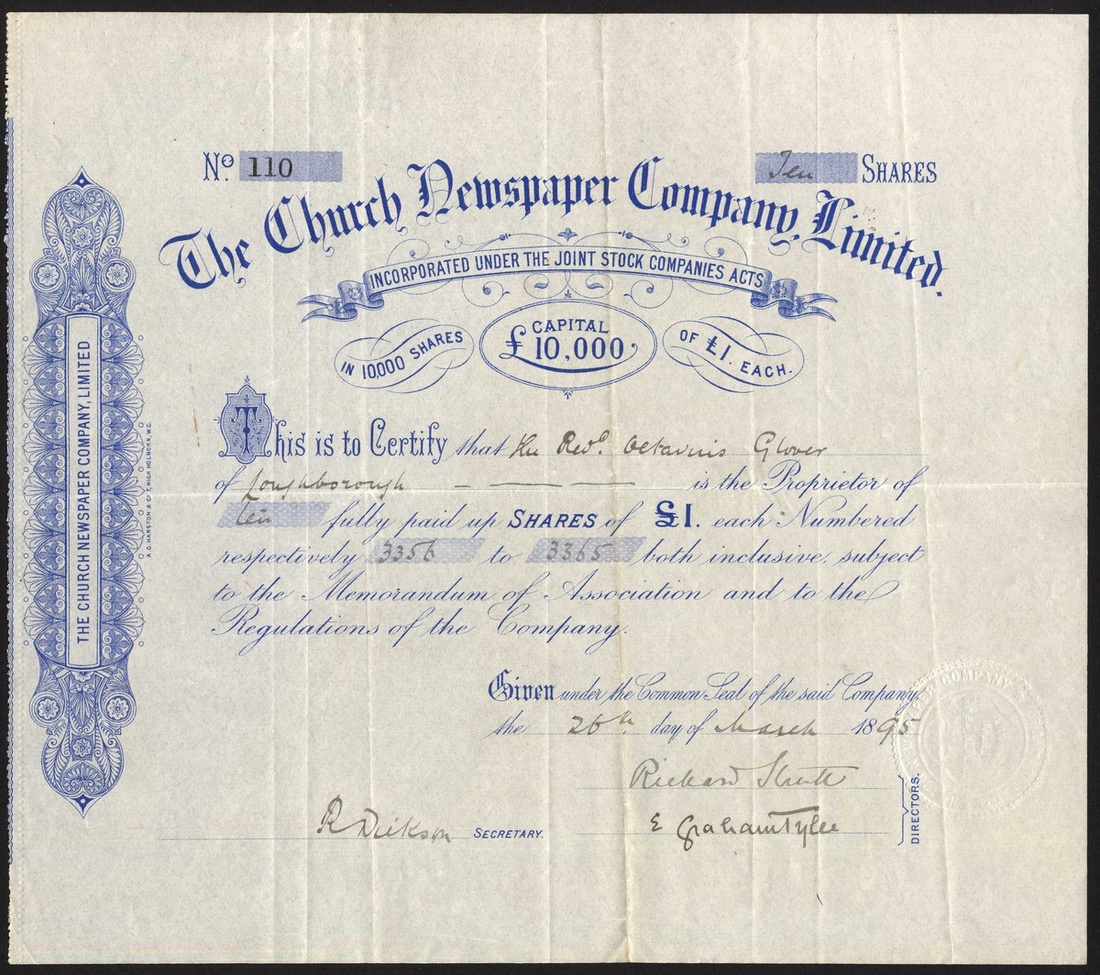 No. 110
Ten SHARES
The Church Newspaper Company, Limited.
INCORPORATED UNDER THE JOINT STOCK COMPANIES ACTS
IN 10,000 SHARES
CAPITAL
£10,000,
OF £1. EACH.
This is to Certify that the Revd. Octavius Glover
of Loughborough is the Proprietor of
ten fully paid up SHARES of £1. each Numbered
respectively 3356 to 3365 both inclusive, subject
to the Memorandum of Association and to the
Regulations of the Company.
Given under the Common Seal of the said Company,
the 26th day of March 1895
Richard Strutt
E Graham Tylee
DIRECTORS.
R Dickson SECRETARY.
THE CHURCH NEWSPAPER COMPANY, LIMITED
A.G. HARSTON & Co 7, HIGH HOLBORN, W.C.